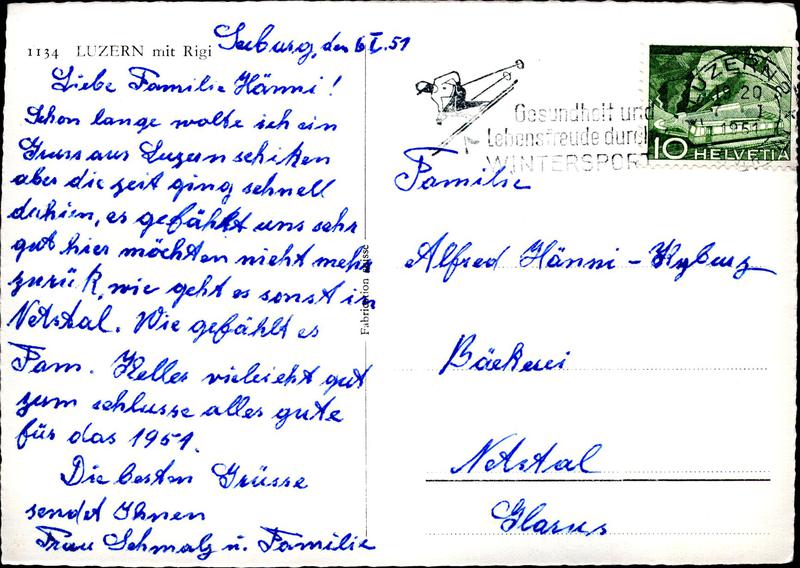 1134 LUZERN mit Rigi
Seeburg, den 6 I. 51
Liebe Familie Hänni!
Schon lange wolte ich ein
Gruss aus Luzern schiken
aber die zeit ging schnell
dahien, es gefählt uns sehr
gut hier möchten nicht mehr
zurük, wie geht es sonst in
Netstal. Wie gefählt es
Fam. Keller vieleicht gut
zum schlusse alles gute
für das 1951.
Die besten Grüsse
sendet Ihnen
Frau Schmalz u. Familie
Fabrication Suisse
Gesundheit und
Lebensfreude durch
WINTERSPORT
LUZERN 2
18-20
7. I
1951
10 HELVETIA
Familie
Alfred Hänni-Kyburz
Bäckerei
Netstal
Glarus